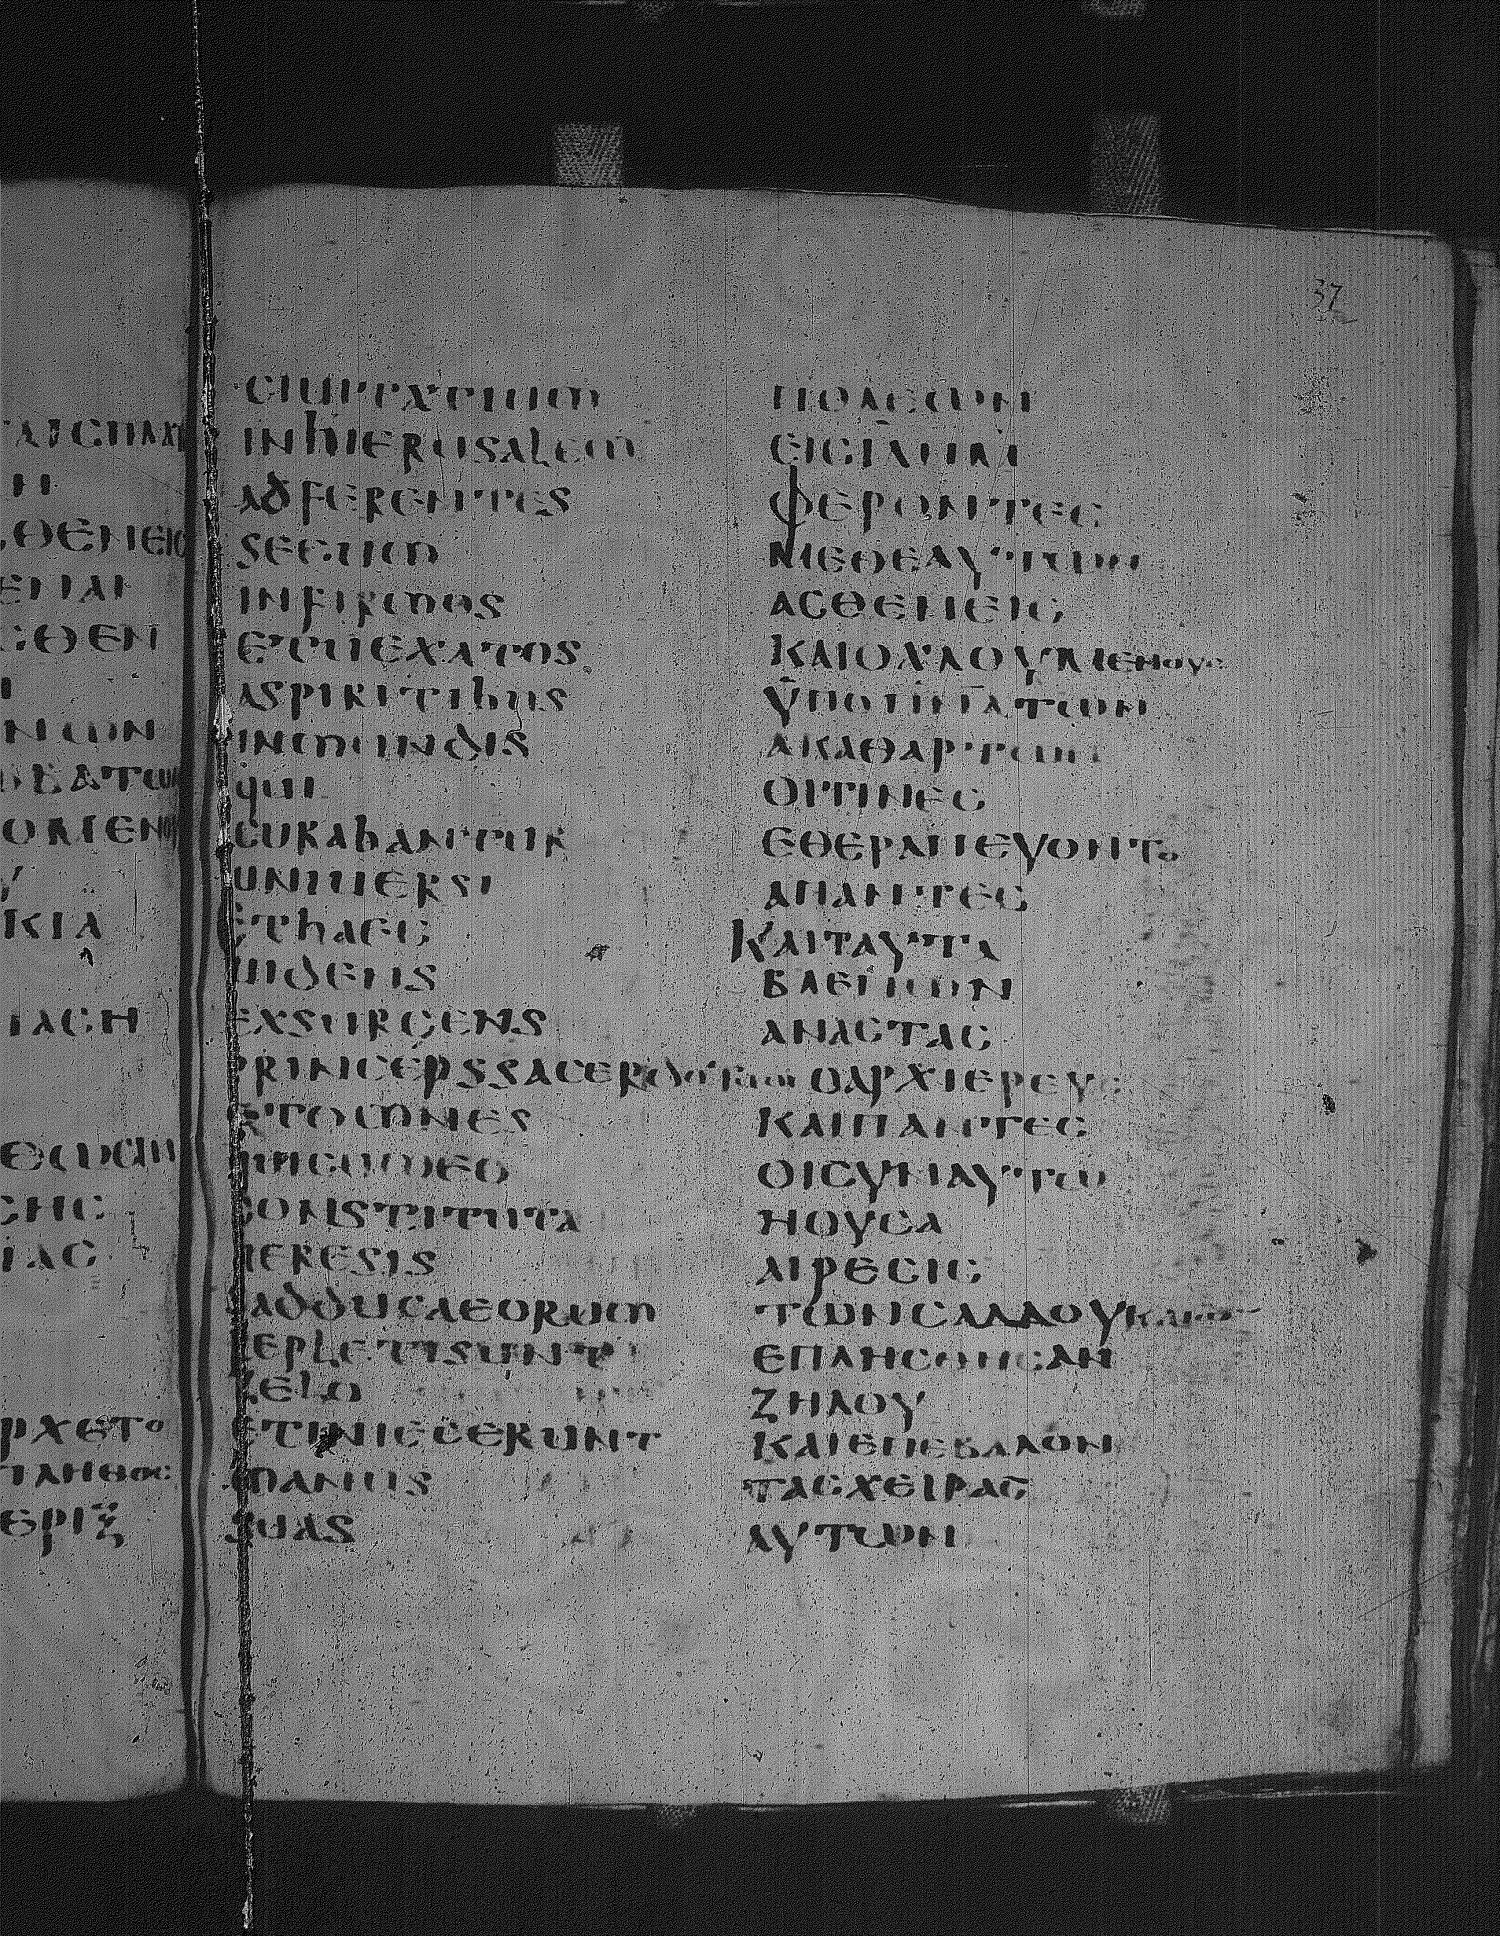 37
ciuitatium
in hierusalem
adferentes
secum
infirmos
et uexatos
aspiritibus
inmundis
qui
curabantur
uniuersi
et haec
uidens
exsurgens
princeps sacerdotum
et omnes
qui cum eo
constituta
heresis
sadducaeorum
repleti sunt
zelo
et iniecerunt
manus
suas
ΠΟΛΕΩΝ
ΕΙC ΙΛΗΜ
ΦΕΡΟΝΤΕC
ΜΕΘΕΑΥΤΩΝ
ΑCΘΕΝΕΙC
ΚΑΙ ΟΧΛΟΥΜΕΝΟΥC
ΫΠΟ ΠΝΑΤΩΝ
ΑΚΑΘΑΡΤΩΝ
ΟΙΤΙΝΕC
ΕΘΕΡΑΠΕΥΟΝΤΟ
ΑΠΑΝΤΕC
ΚΑΙ ΤΑΥΤΑ
ΒΛΕΠΩΝ
ΑΝΑCΤΑC
Ο ΑΡΧΙΕΡΕΥC
ΚΑΙ ΠΑΝΤΕC
ΟΙ CΥΝ ΑΥΤΩ
Η ΟΥCΑ
ΑΙΡΕCΙC
ΤΩΝ CΑΔΔΟΥΚΑΙΩΝ
ΕΠΛΗCΘΗCΑΝ
ΖΗΛΟΥ
ΚΑΙ ΕΠΕΒΑΛΟΝ
ΤΑC ΧΕΙΡΑC
ΑΥΤΩΝ